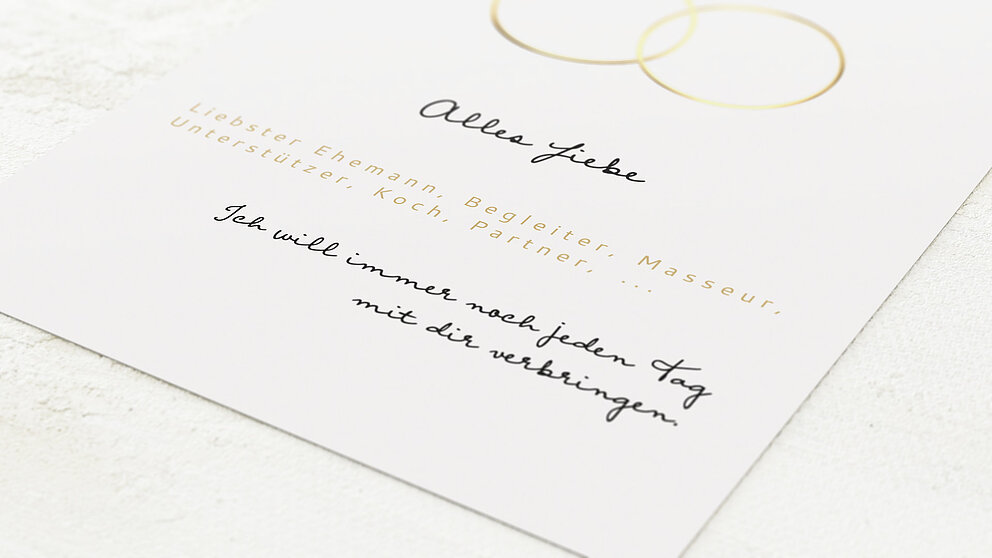 Alles Liebe
Liebster Ehemann, Begleiter, Masseur,
Unterstützer, Koch, Partner, ...
Ich will immer noch jeden Tag
mit dir verbringen.